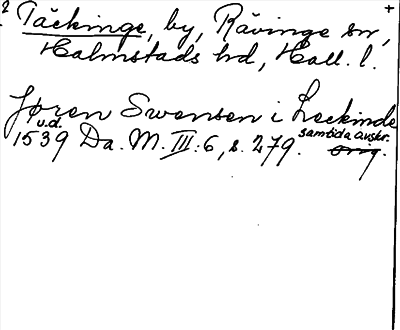 2 Täckinge, by, Rävinge sn, +
Halmstads hd, Hall. l.
Jøren Swensen i Teckinde
u.d. samtida avskr.
1539 Da. M. III:6, s. 279. orig.